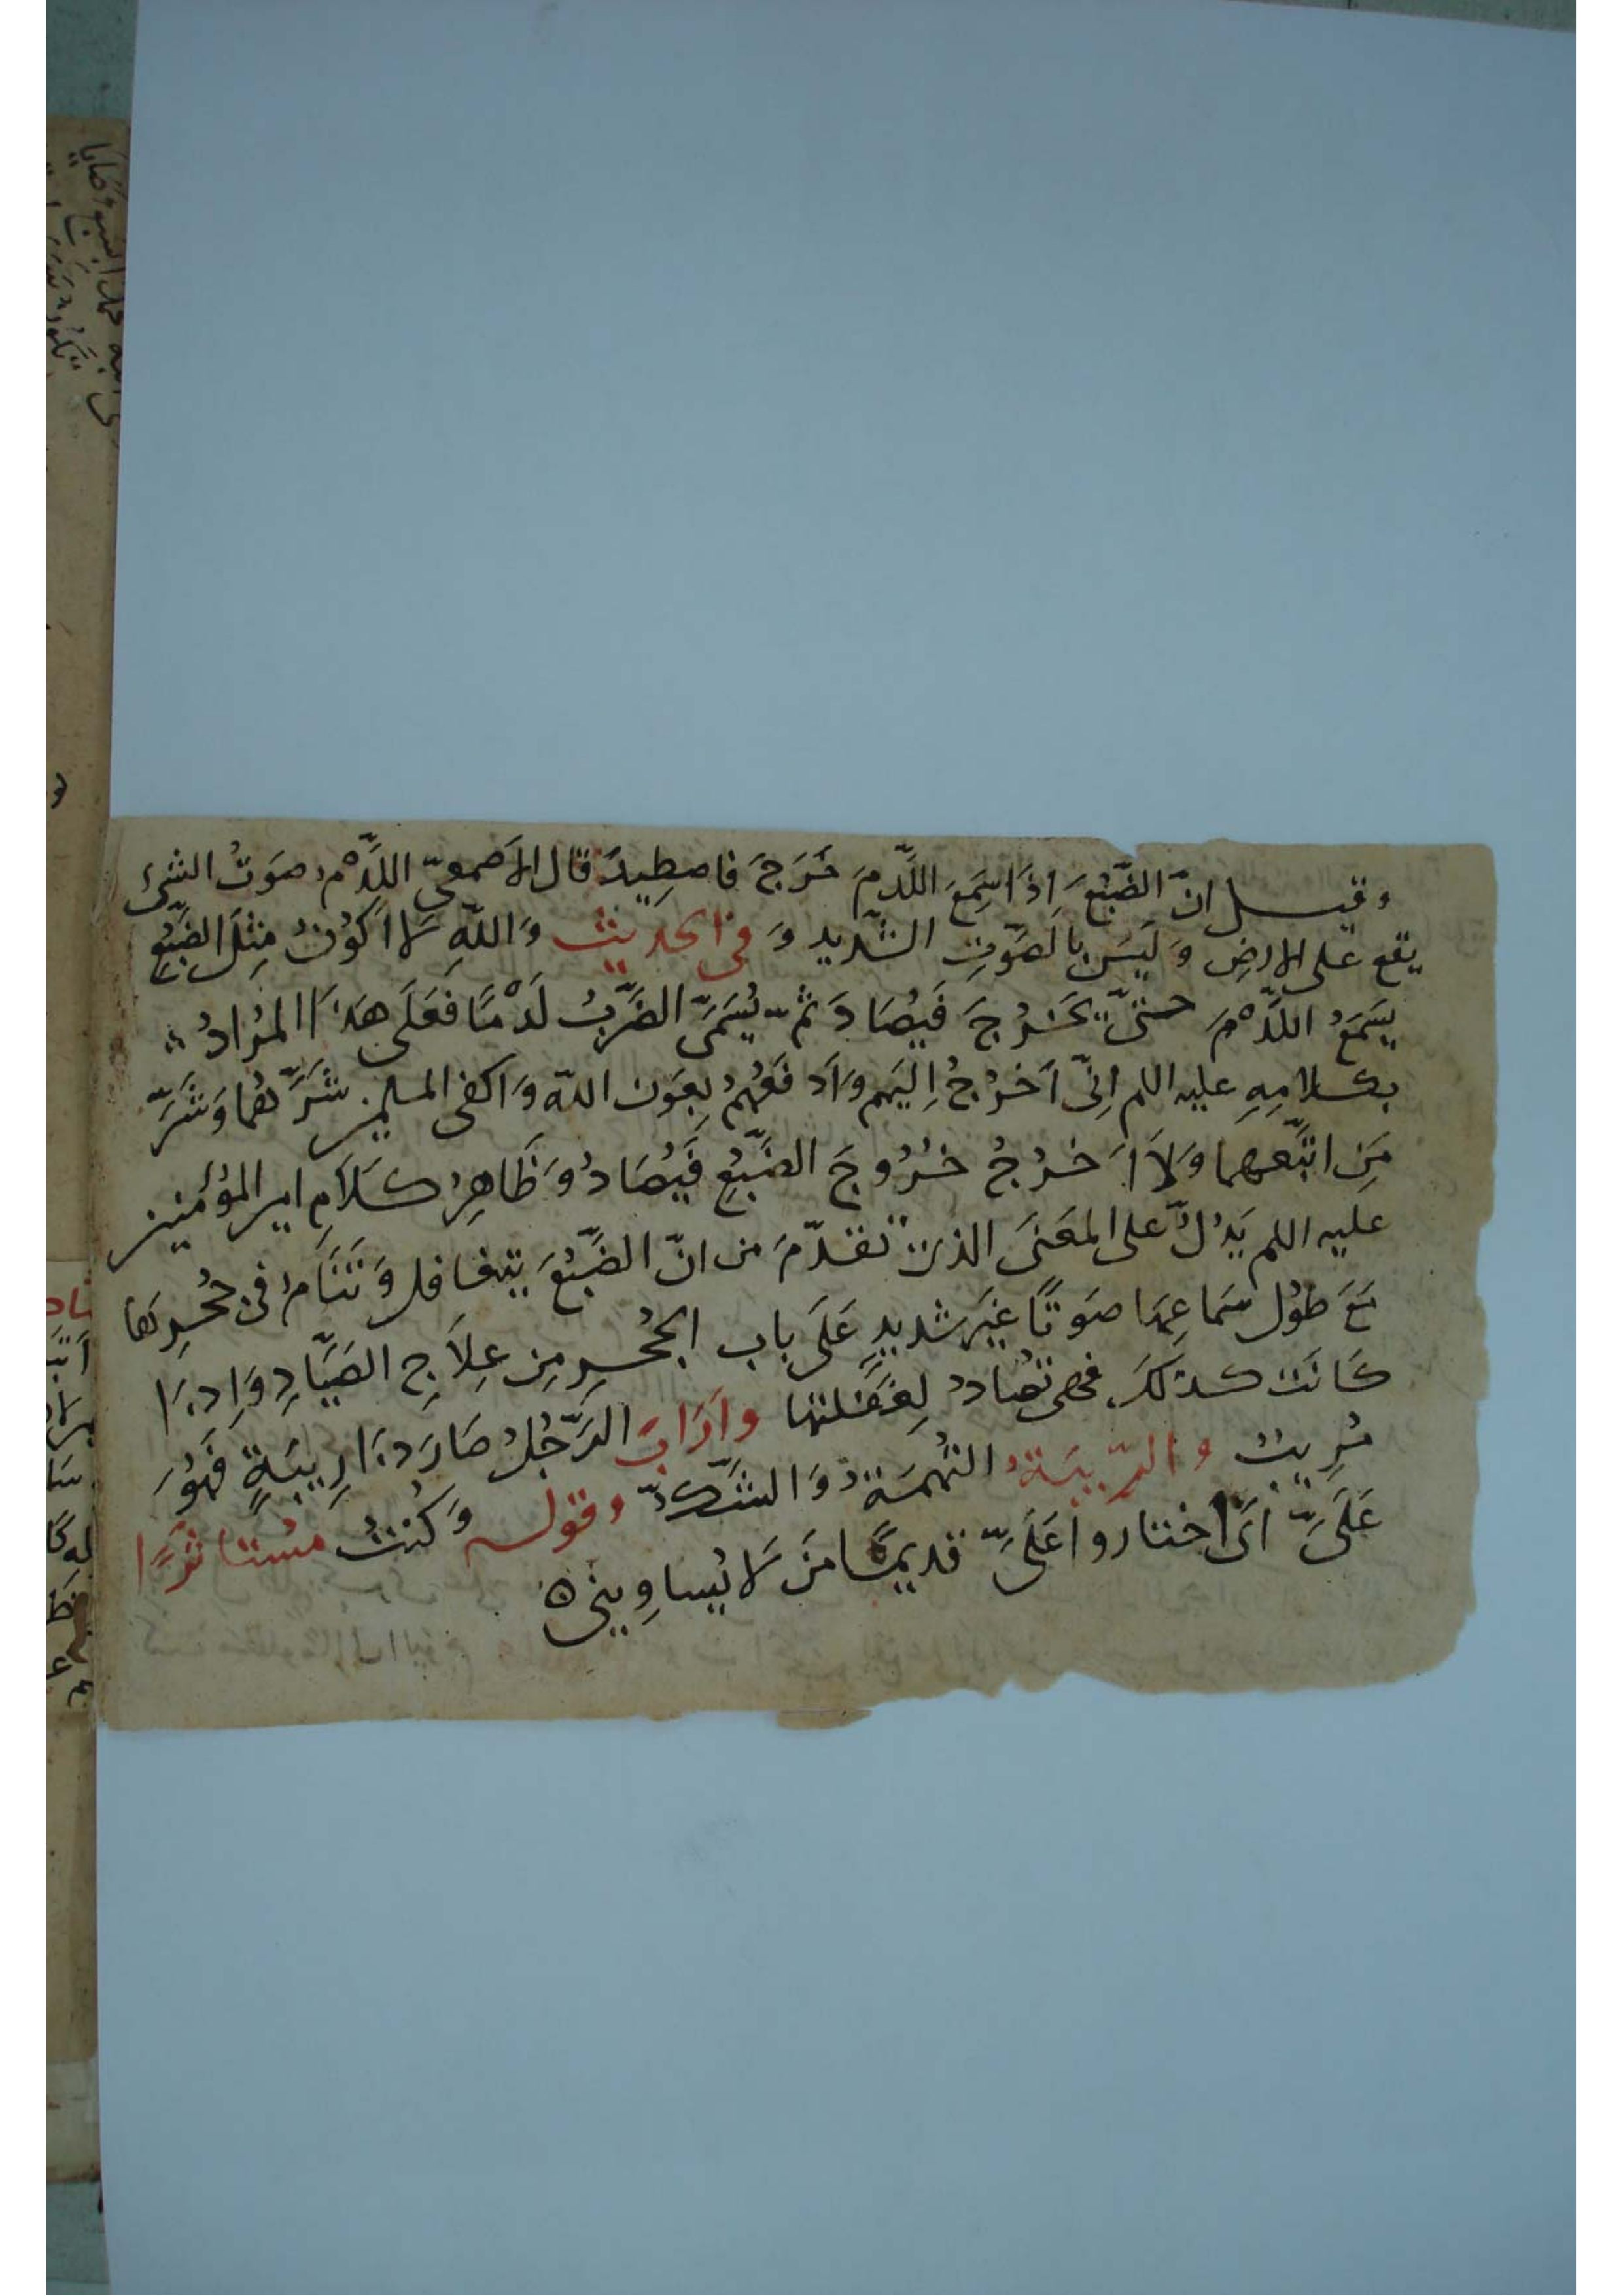 وقيل انّ الضَّبُعَ اِذَا سَمِعَ اللَّدْمَ خَرَجَ فاصطِيدَ قال الاَصمعىّ اللَّدْمُ صَوتُ الشىءِ
يقع على الارضِ وَلَيسَ بالصَّوتِ الشَّديد وَفى الحديث وَاللّهِ لاَ اكُونُ مِثلَ الضَّبُعِ
يَسمَعُ اللَّدْمَ حتىّ يَخرُجَ فَيُصَادَ ثمّ يُسَمىَّ الضَّربُ لَدْمًا فَعَلَى هَذَا المُرادُ
بكلامِهِ عليه اللم اِنّى اَخرُجُ اِلَيهم وَاَدفَعُهُم بِعَون اللّه وَاكفى المسلمين شَرَّهُما وَشَرَّ
مَنِ اتبَّعهما وَلاَ اَخرُجُ خُرُوجَ الضَّبُعِ فَيُصَادُ وَظَاهِرُ كَلاَمِ امير المؤمنين
عليه اللم يَدُلّ على المعَنَى الذى تقدّمَ من انّ الضَّبُعَ يتغافل وَتَنَامُ فى جُحرِهَا
مَعَ طوُل سَماعِهَا صَوتًا غيَر شديدٍ عَلَى باب الجُحرِ مِن عِلاَجِ الصَيَّادِ وَاِذَا
كَانَت كذلكَ فهى تصَادُ لِغَفلَتها وارَابَ الرَّجُلُ صَارَ ذَا رِيبَةٍ فَهُوَ
مُرِيبٌ والرّيبَةُ التُهمَةُ وَالشَّكُّ وقوله وَكُنتُ مُستاثَرًا
عَلَىَّ اَى اختاروا عَلَىَّ قديمًا مَن لاَ يُساوِينى ٥